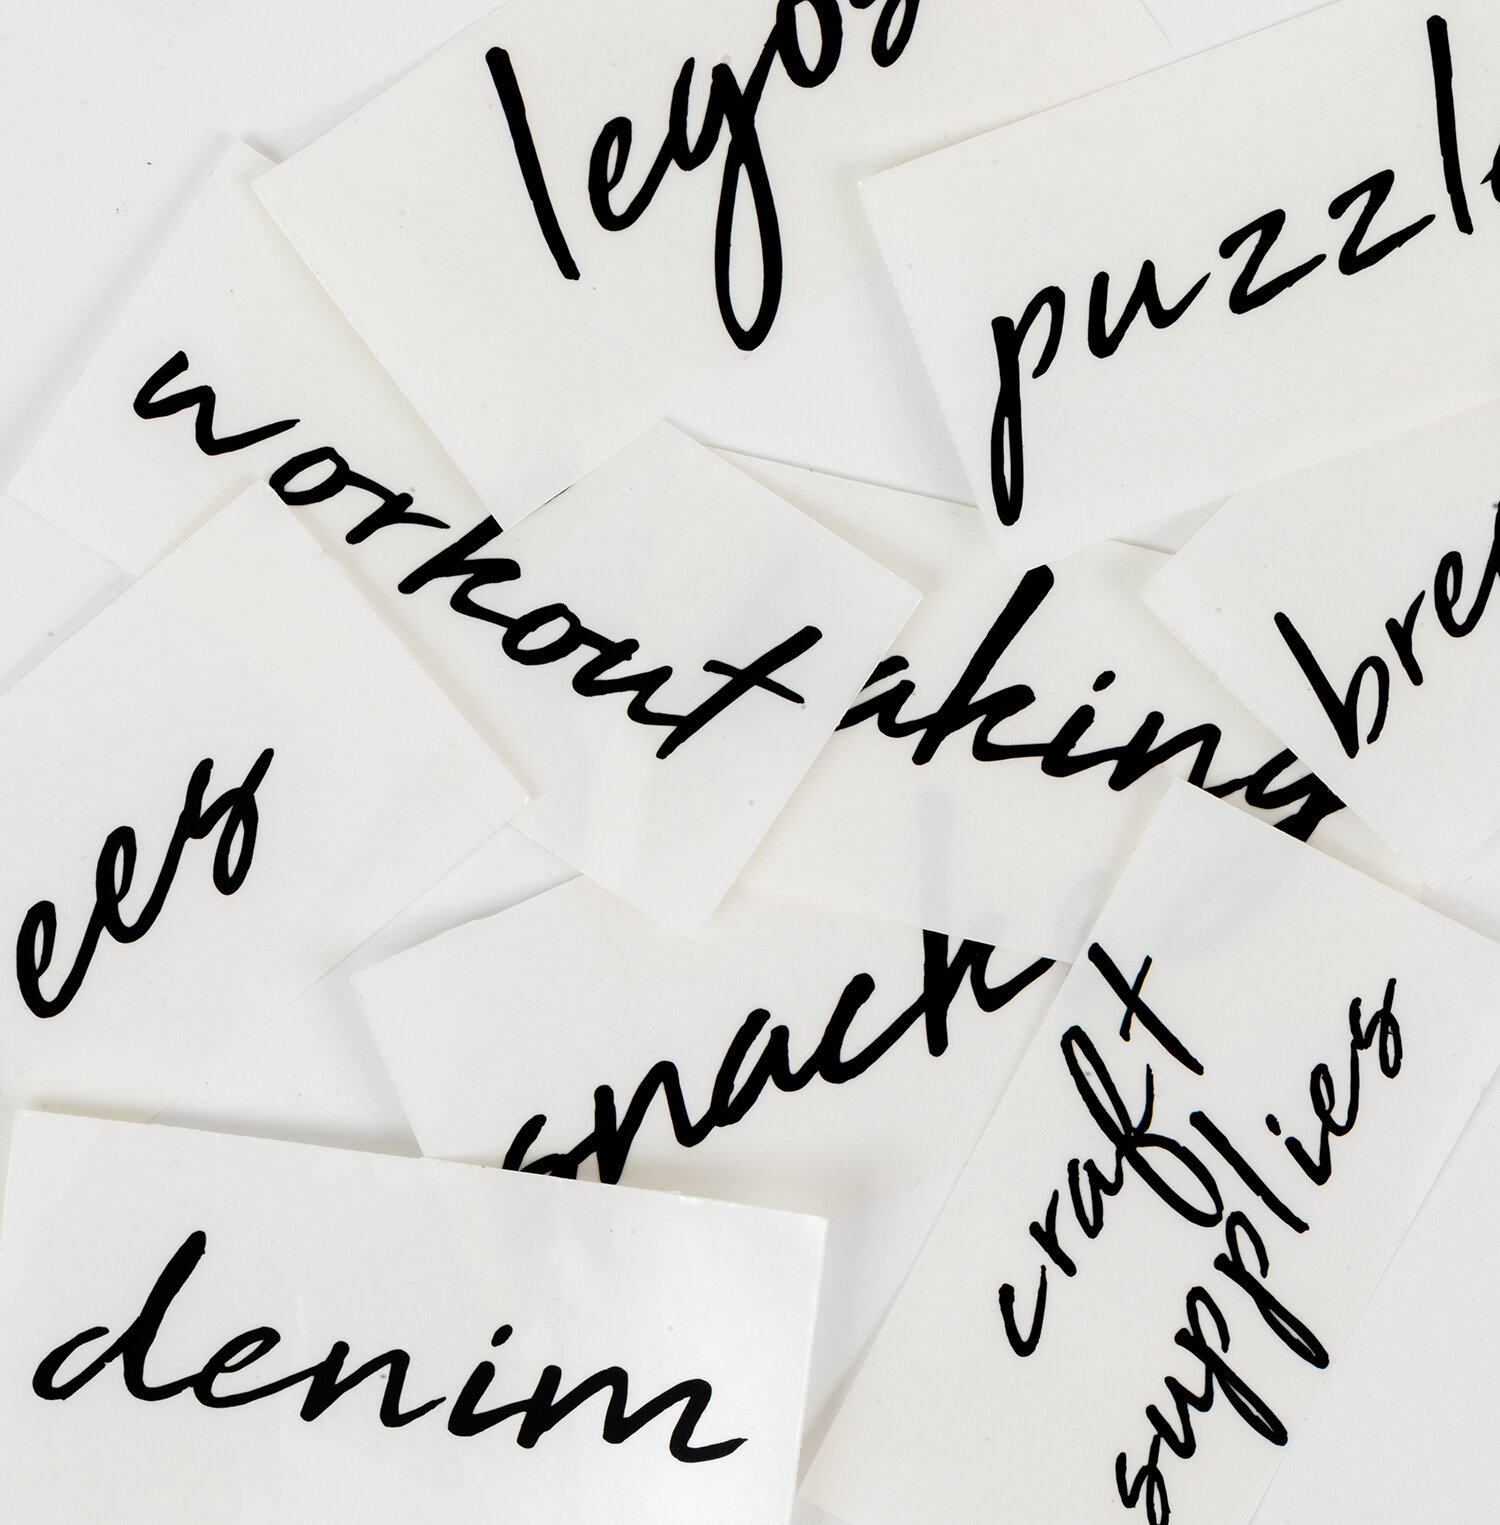 legos
puzzle
workout
aking
bre
ees
snack
craft
supplies
denim